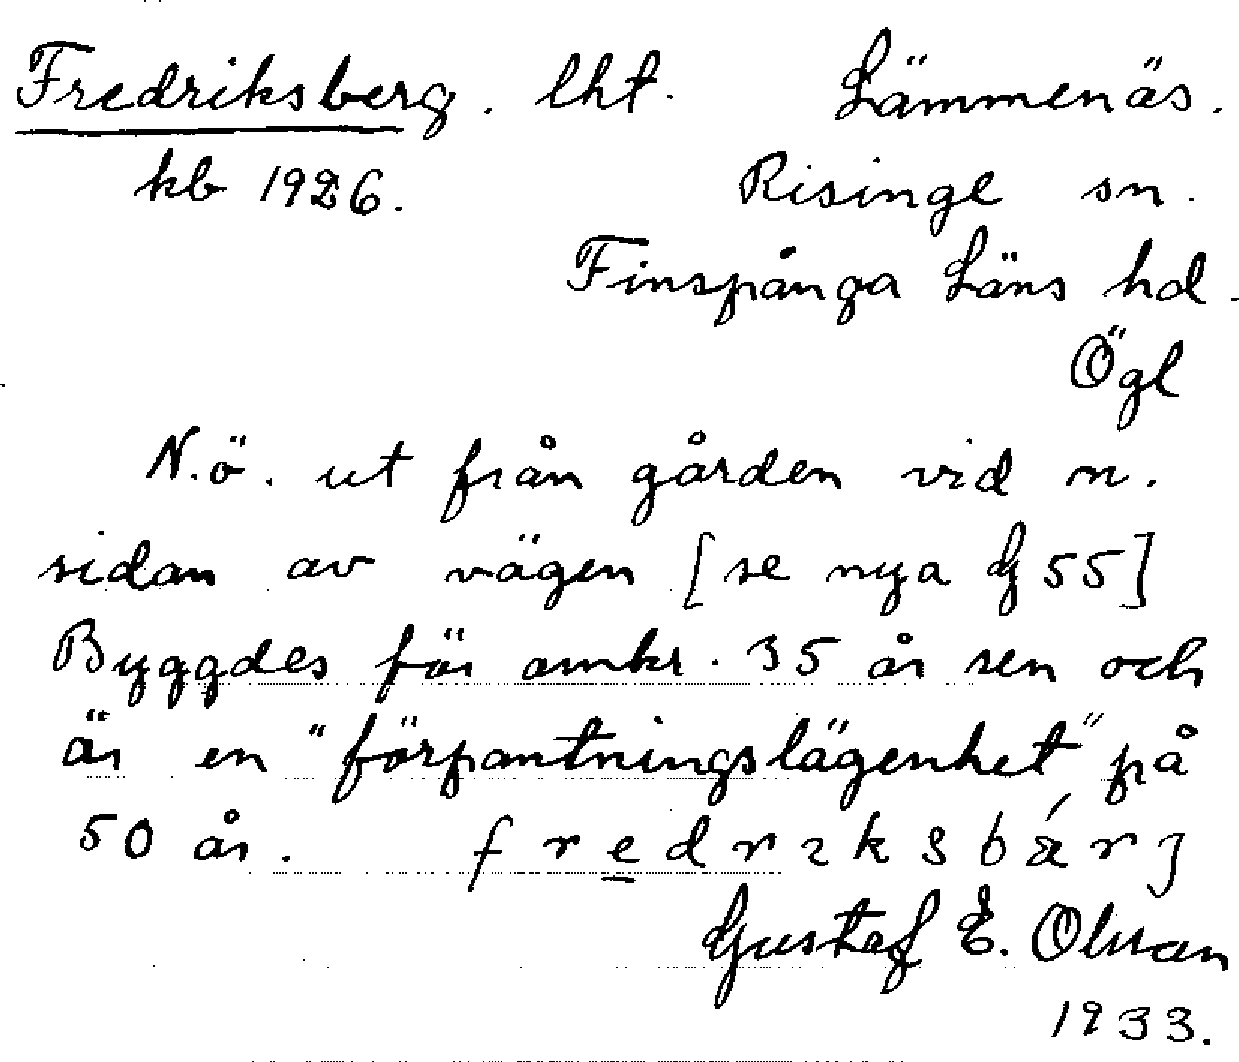 Fredriksberg. lht. Lämmenäs.
kb 1926. Risinge sn.
Finspånga Läns hd.
Ögl
N.ö. ut från gården vid n.
sidan av vägen [se nya G 55]
Byggdes för omkr. 35 år sen och
är en "förpantningslägenhet" på
50 år. fredrıksbá̈rj
Gustaf E. Olsson
1933.